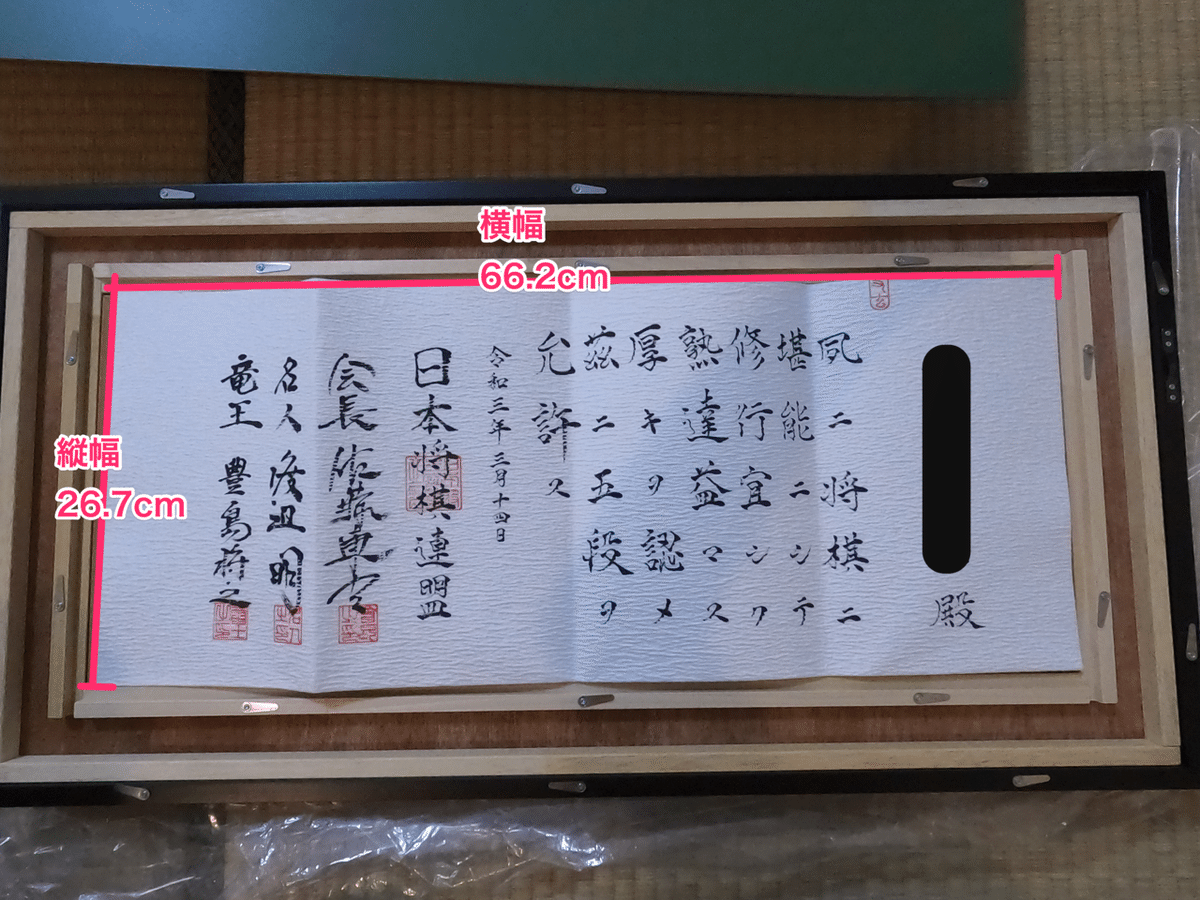 横幅
66.2cm
縦幅
26.7cm
殿
夙ニ将棋ニ
堪能ニシテ
修行宜シク
熟達益マス
厚キヲ認メ
茲ニ五段ヲ
允許ス
令和三年三月十四日
日本将棋連盟
会長 佐藤康光
名人 渡辺明
竜王 豊島将之